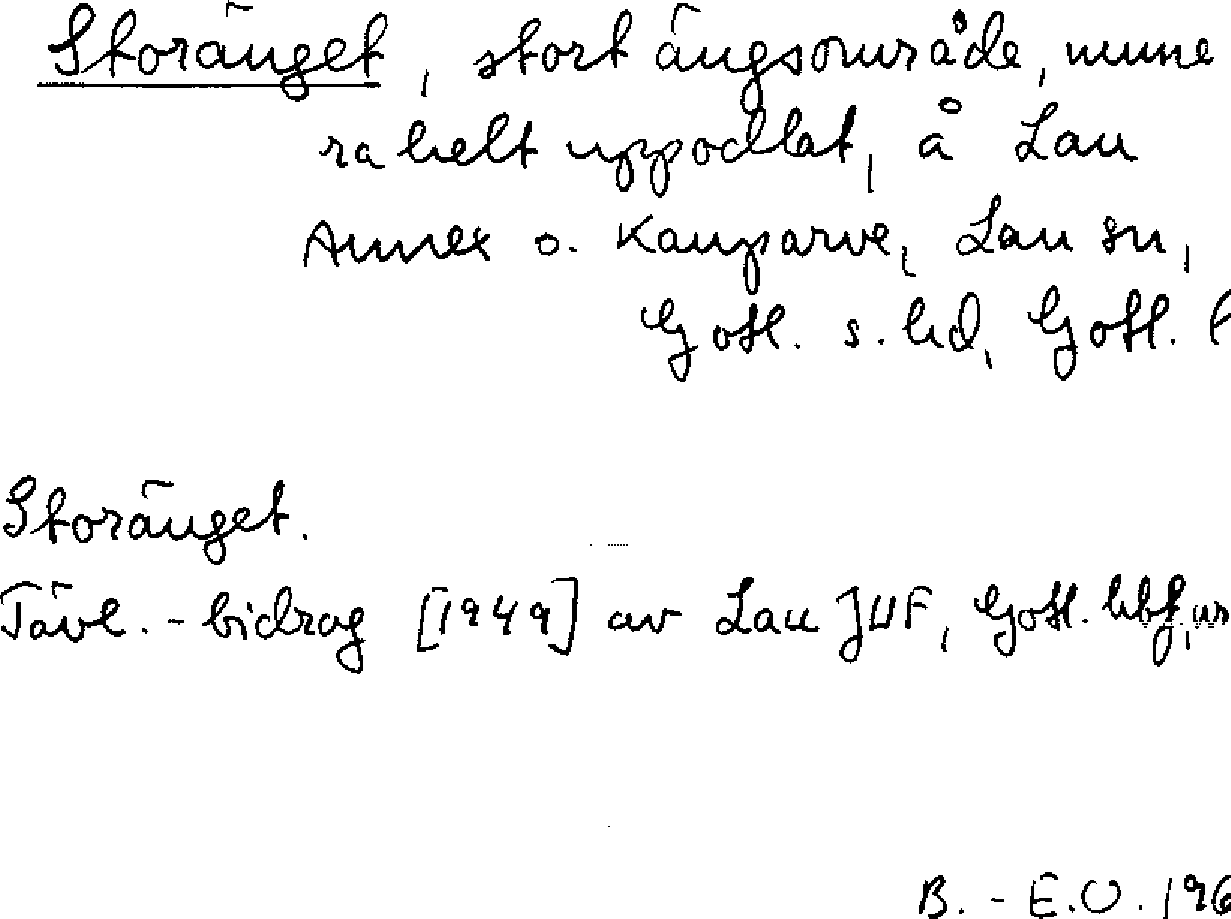 Storänget, stort ängsområde, nume
ra helt uppodlat, å Lau
Annex o. Kauparve, Lau sn,
Gotl. s. hd, Gotl. l
Storänget.
Tävl.-bidrag [1949] av Lau JUF, Gotl. hbf, us
B.-E.O. 196